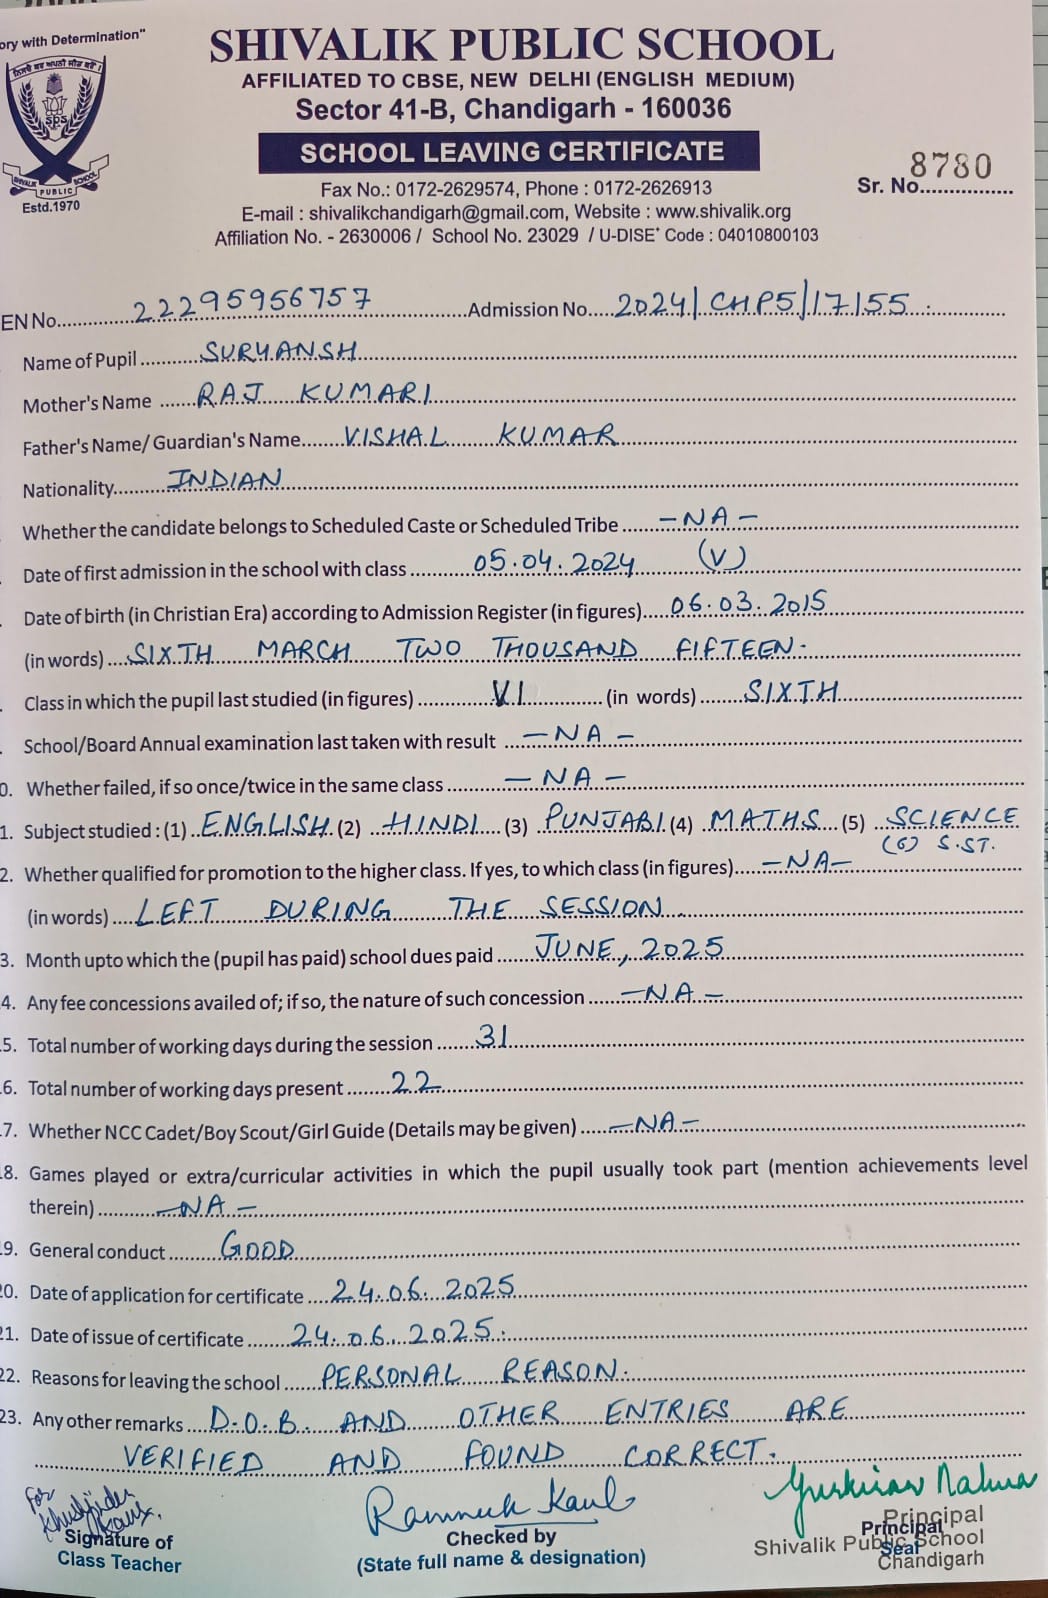 ory with Determination"
SHIVALIK PUBLIC SCHOOL
AFFILIATED TO CBSE, NEW DELHI (ENGLISH MEDIUM)
Sector 41-B, Chandigarh - 160036
SCHOOL LEAVING CERTIFICATE
SPS
SHIVALIK PUBLIC SCHOOL
Estd.1970
8780
Sr. No.
Fax No.: 0172-2629574, Phone : 0172-2626913
E-mail : shivalikchandigarh@gmail.com, Website : www.shivalik.org
Affiliation No. - 2630006 / School No. 23029 / U-DISE+ Code : 04010800103
EN No. 22295956757 Admission No. 2024/CHP5/17155.
Name of Pupil SURYANSH
Mother's Name RAJ KUMARI
Father's Name/ Guardian's Name VISHAL KUMAR
Nationality INDIAN
Whether the candidate belongs to Scheduled Caste or Scheduled Tribe -NA-
Date of first admission in the school with class 05.04.2024 (V)
Date of birth (in Christian Era) according to Admission Register (in figures) 06.03.2015
(in words) SIXTH MARCH TWO THOUSAND FIFTEEN.
Class in which the pupil last studied (in figures) VI (in words) SIXTH
School/Board Annual examination last taken with result -NA-
0. Whether failed, if so once/twice in the same class -NA-
1. Subject studied : (1) ENGLISH (2) HINDI (3) PUNJABI (4) MATHS (5) SCIENCE
(6) S.ST.
2. Whether qualified for promotion to the higher class. If yes, to which class (in figures) -NA-
(in words) LEFT DURING THE SESSION
3. Month upto which the (pupil has paid) school dues paid JUNE, 2025
4. Any fee concessions availed of; if so, the nature of such concession -NA-
5. Total number of working days during the session 31
6. Total number of working days present 22
7. Whether NCC Cadet/Boy Scout/Girl Guide (Details may be given) -NA-
8. Games played or extra/curricular activities in which the pupil usually took part (mention achievements level
therein) -NA-
9. General conduct GOOD
20. Date of application for certificate 24.06.2025
21. Date of issue of certificate 24.06.2025.
22. Reasons for leaving the school PERSONAL REASON.
23. Any other remarks D.O.B. AND OTHER ENTRIES ARE
VERIFIED AND FOUND CORRECT.
For
Signature of
Class Teacher
Kaul
Checked by
(State full name & designation)
Principal
Seal
Principal
Shivalik Public School
Chandigarh